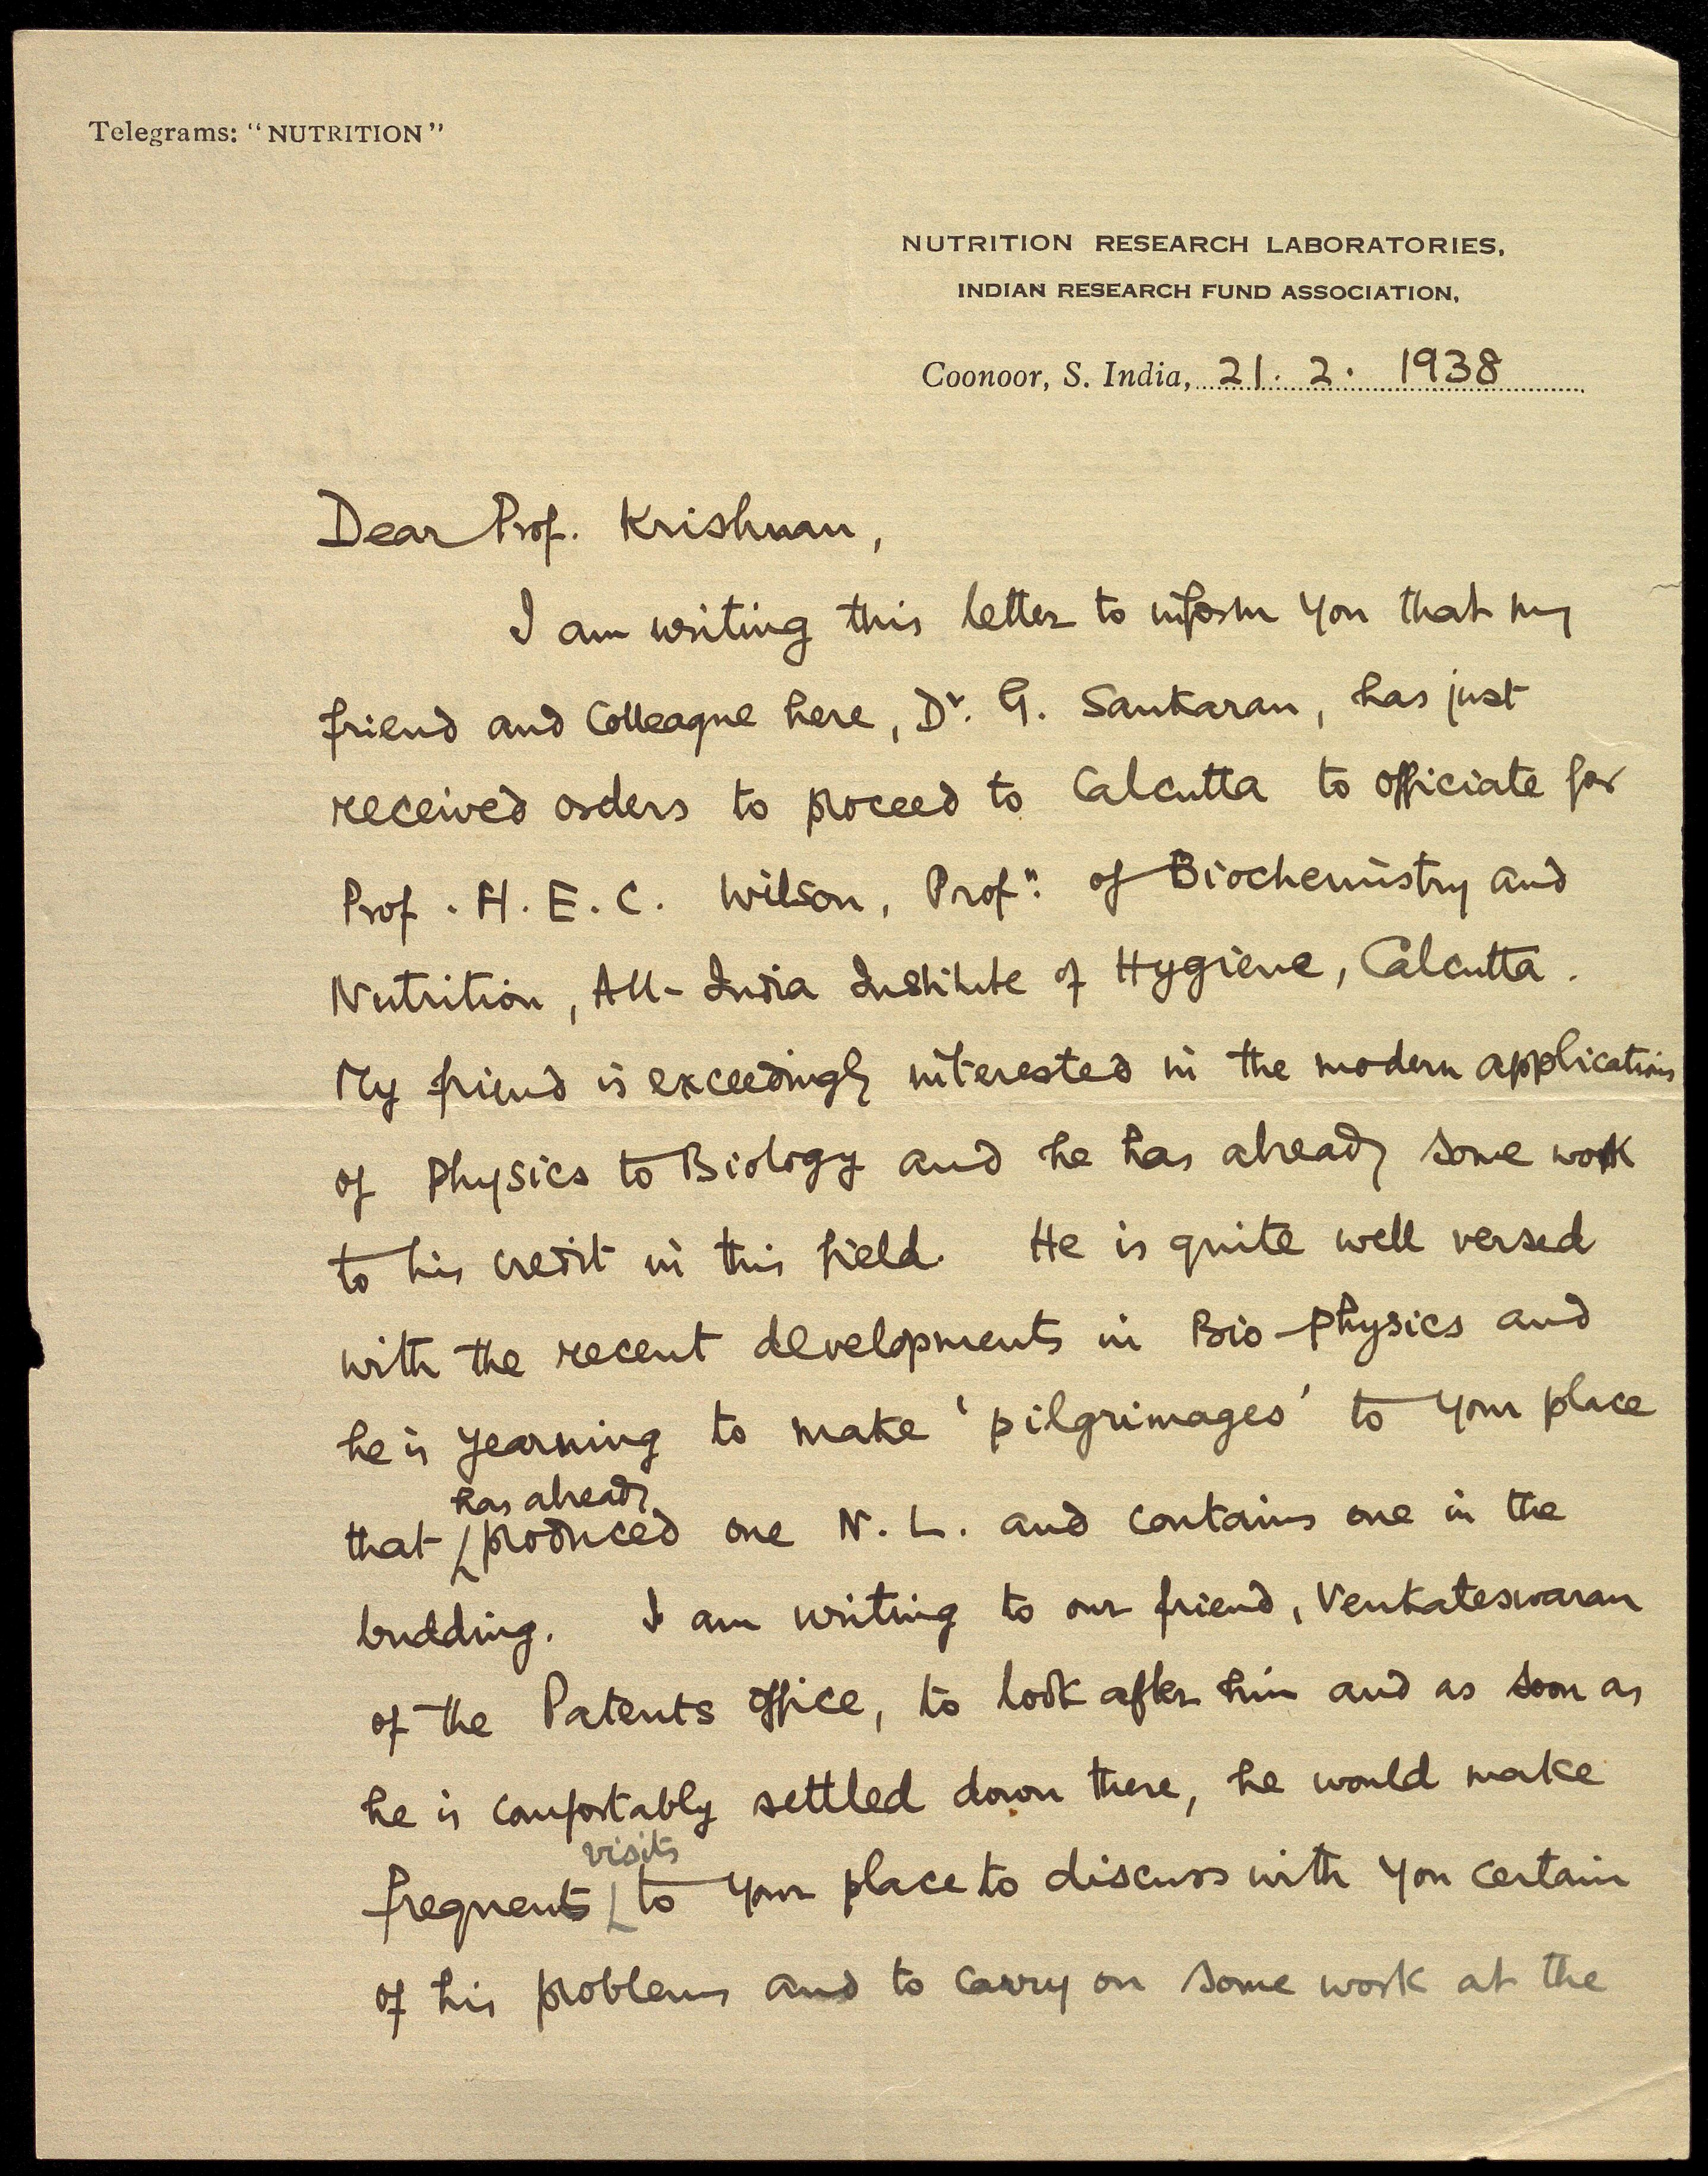 Telegrams: "NUTRITION"
NUTRITION RESEARCH LABORATORIES,
INDIAN RESEARCH FUND ASSOCIATION,
Coonoor, S. India, 21. 2. 1938
Dear Prof. Krishnan,
I am writing this letter to inform you that my
friend and Colleague here, Dr. G. Sankaran, has just
received orders to proceed to Calcutta to officiate for
Prof. H. E. C. Wilson, Profr. of Biochemistry and
Nutrition, All-India Institute of Hygiene, Calcutta.
My friend is exceedingly interested in the modern applications
of Physics to Biology and he has already some work
to his credit in this field. He is quite well versed
with the recent developments in Bio-Physics and
he is yearning to make 'pilgrimages' to your place
has already
that produced one N. L. and contains one in the
budding. I am writing to our friend, Venkateswaran
of the Patents office, to look after him and as soon as
he is comfortably settled down there, he would make
visits
frequents to your place to discuss with you certain
of his problems and to carry on some work at the